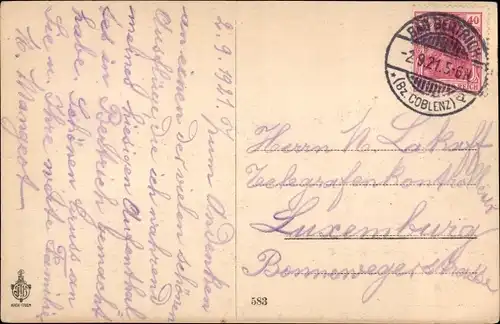 2.9.1921.
zum Andenken
an einen der vielen schönen
Ausflüge, die ich während
meines hiesigen Aufenthal
tes in Bertrich gemacht
habe. Schönen Gruss an
Sie u. Ihre werte Familie
BAD BERTRICH
-2.9.21.5-6N
*(BZ. COBLENZ)*
40
Herrn N. Lakaff
Telegrafenkontrolleur
Luxemburg
Bonneweger Strasse
583